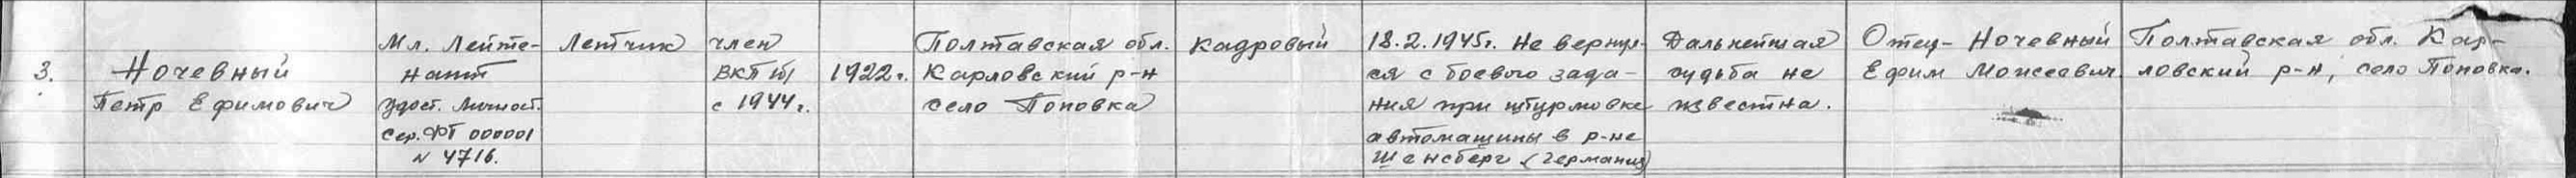 3.
Ночевный
Петр Ефимович
Мл. Лейте-
нант
удост. Личност.
Сер. ФТ 000001
№ 4716.
Летчик
член
ВКП(б)
с 1944г.
1922г.
Полтавская обл.
Карловский р-н
село Поповка
Кадровый
18.2.1945г. Не вернул-
ся с боевого зада-
ния при штурмовке
автомашины в р-не
Шенсберг (Германия)
Дальнейшая
судьба не
известна.
Отец - Ночевный
Ефим Моисеевич
Полтавская обл. Кар-
ловский р-н, село Поповка.